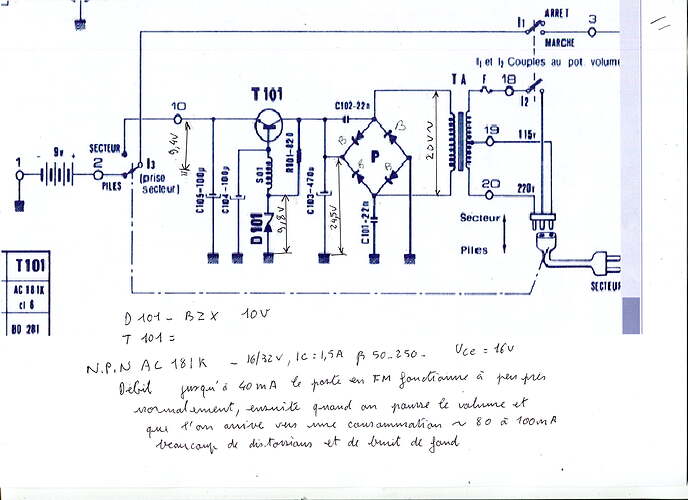 ARRET
I1
3
MARCHE
I1 et I2 Couples au pot. volume
T101
TA
F
18
I2
10
C102-22n
SECTEUR
9,4V
R101-820
B
B
20V~
19
115v
1
9v
2
I3
P
PILES
(prise
secteur)
C105-100µ
C104-100µ
S01
C103-470µ
B
B
20
220v
D101
9,8V
24,5V
C101-22n
Secteur
Piles
SECTEUR
T101
AC 181K
cl 6
BD 281
D101 - BZX 10V
T 101 =
N.P.N AC 181K - 16/32V, IC = 1,5A β 50-250- VCE = 16V
Débit jusqu'à 40mA le poste en FM fonctionne à peu près
normalement, ensuite quand on pousse le volume et
que l'on arrive vers une consommation ~ 80 à 100mA
beaucoup de distorsions et de bruit de fond